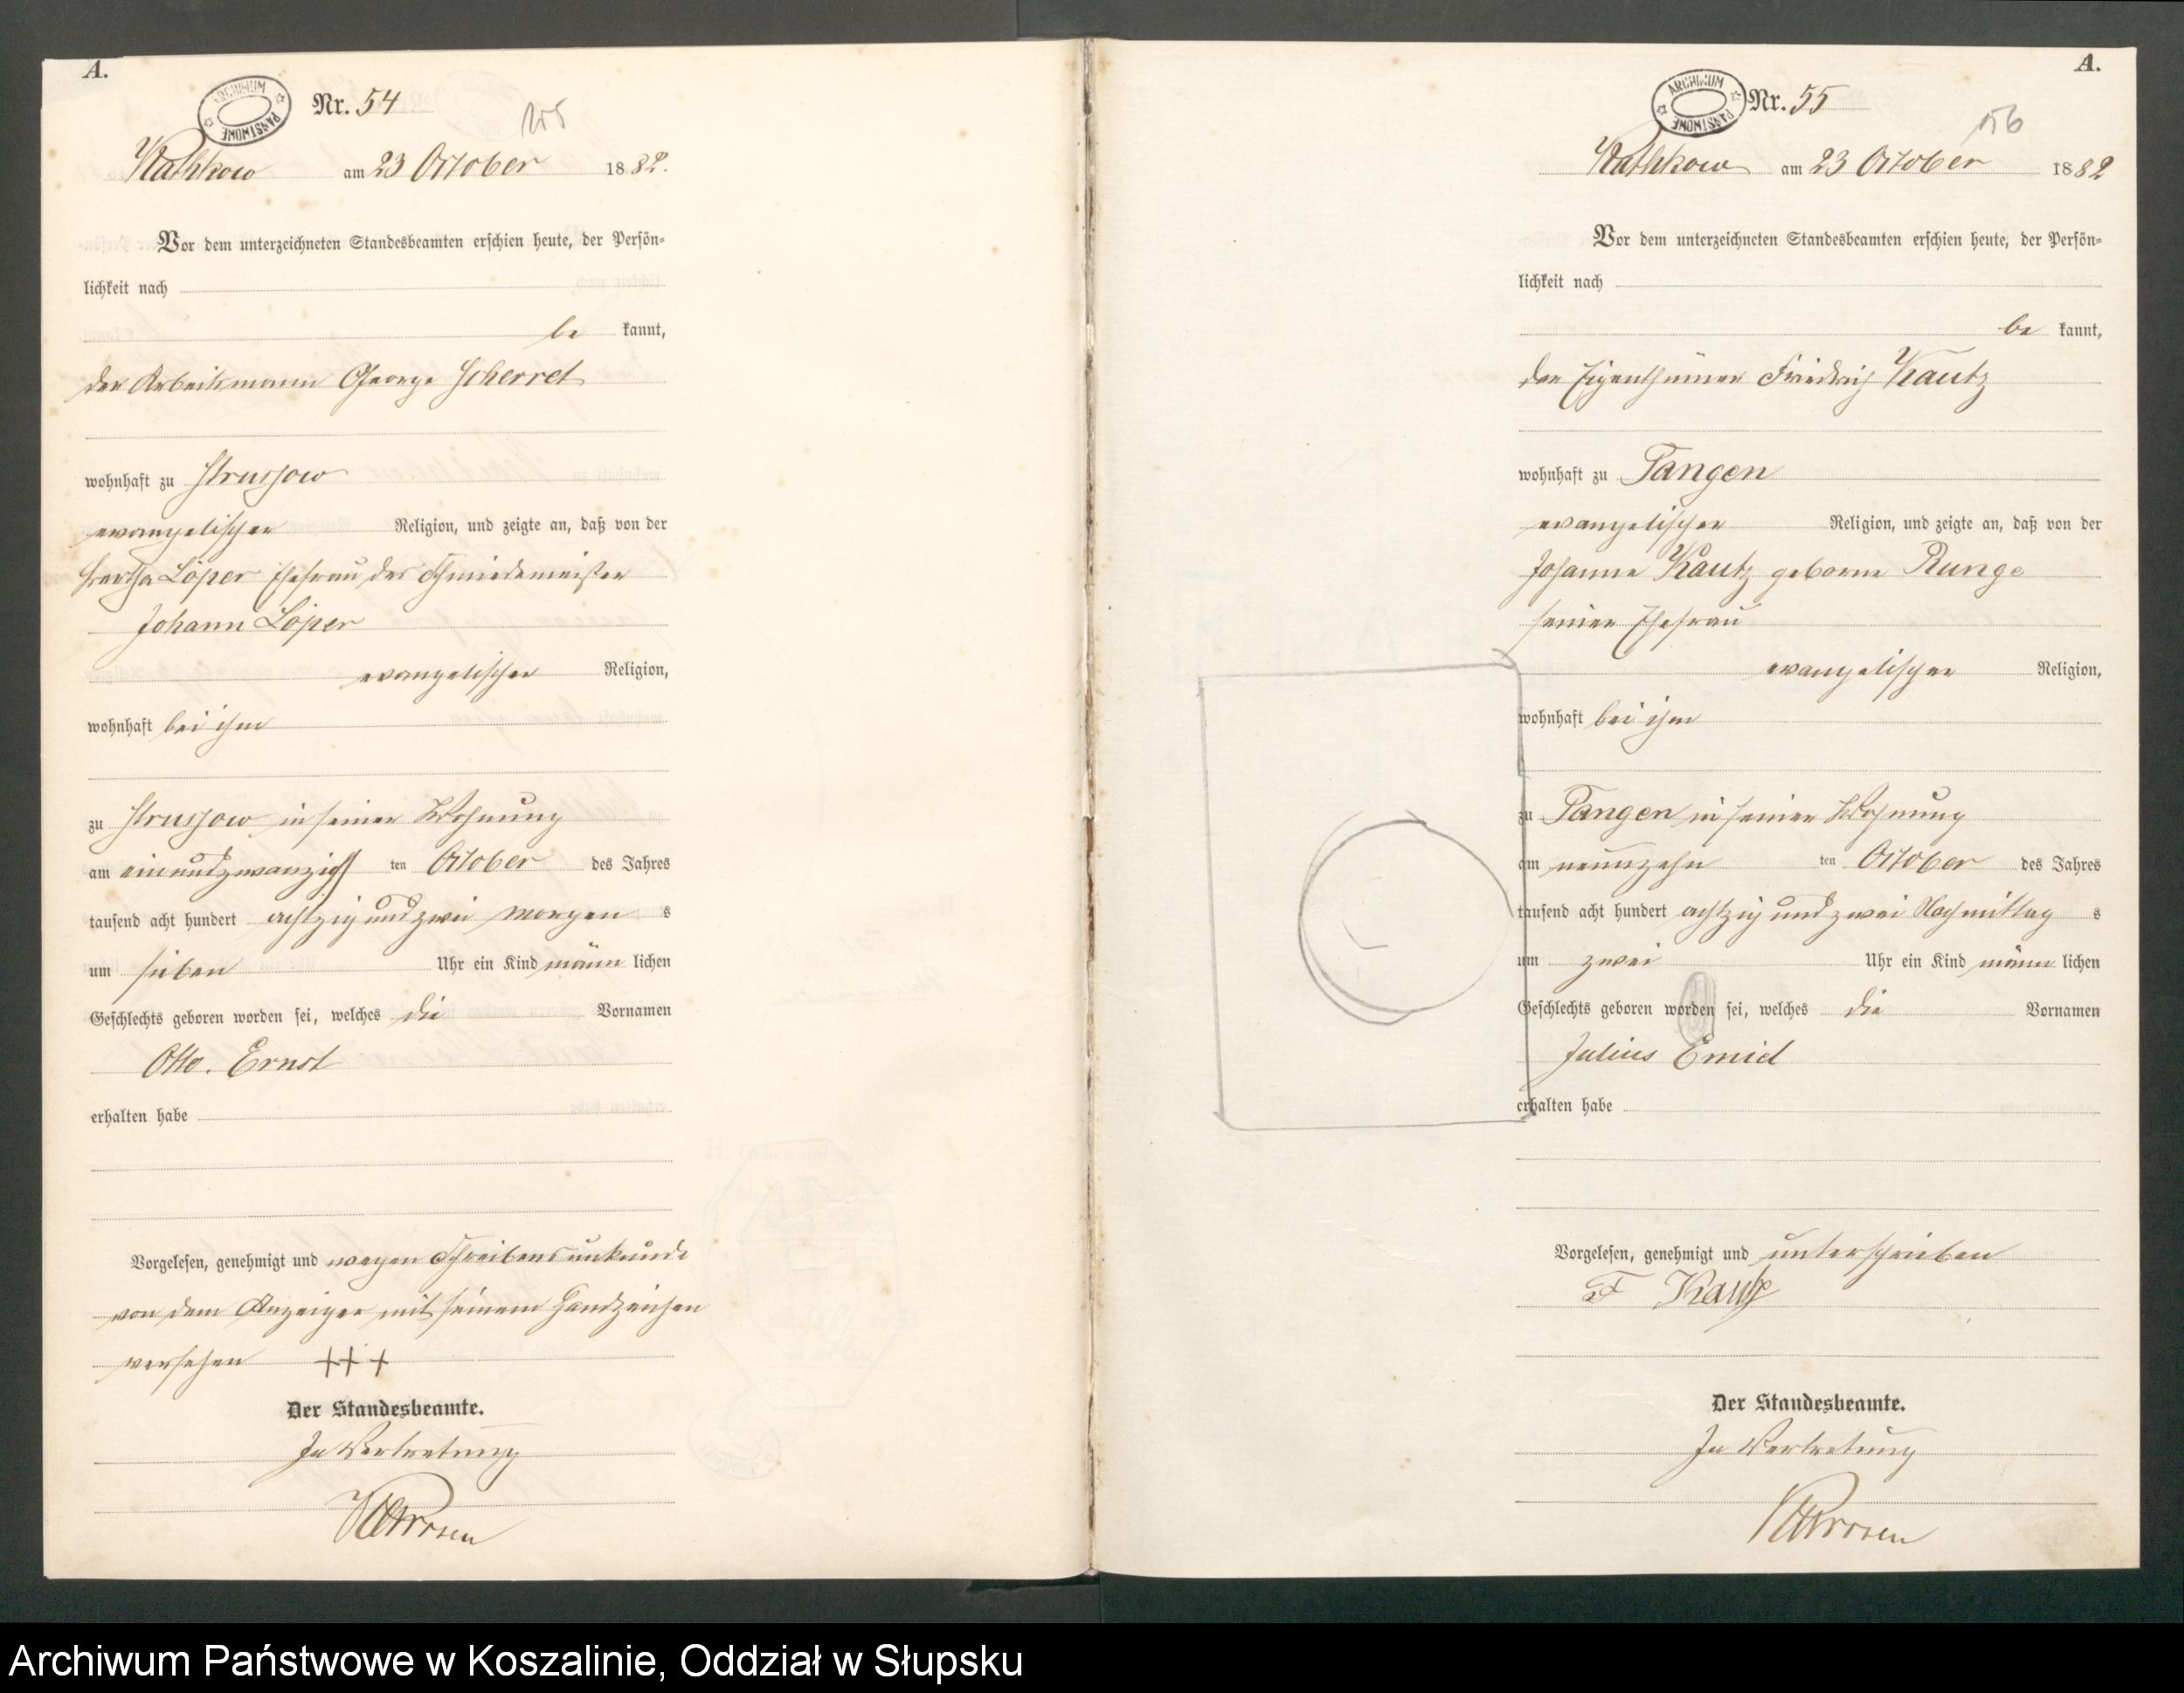 A.
ARCHIWUM PAŃSTWOWE
Nr. 54
155
Kathkow am 23 October 1882.
Vor dem unterzeichneten Standesbeamten erschien heute, der Persön-
lichkeit nach
be kannt,
der Arbeitsmann George Scherret
wohnhaft zu Strussow
evangelischer Religion, und zeigte an, daß von der
Bertha Löper Ehefrau des Schmiedemeister
Johann Löper
evangelischer Religion,
wohnhaft bei ihm
zu Strussow in seiner Wohnung
am einundzwanzigs ten October des Jahres
tausend acht hundert achtzig und zwei Morgen s
um sieben Uhr ein Kind männ lichen
Geschlechts geboren worden sei, welches die Vornamen
Otto. Ernst
erhalten habe
Vorgelesen, genehmigt und wegen Schreibensunkunde
von dem Anzeiger mit seinem Handzeichen
versehen +++
Der Standesbeamte.
In Vertretung
A.
ARCHIWUM PAŃSTWOWE
Nr. 55
156
Kathkow am 23 October 1882
Vor dem unterzeichneten Standesbeamten erschien heute, der Persön-
lichkeit nach
be kannt,
der Eigenthümer Friedrich Kautz
wohnhaft zu Tangen
evangelischer Religion, und zeigte an, daß von der
Johanne Kautz geborne Runge
seiner Ehefrau
evangelischer Religion,
wohnhaft bei ihm
zu Tangen in seiner Wohnung
am neunzehn ten October des Jahres
tausend acht hundert achtzig und zwei Nachmittag s
um zwei Uhr ein Kind männ lichen
Geschlechts geboren worden sei, welches die Vornamen
Julius Emiel
erhalten habe
Vorgelesen, genehmigt und unterschrieben
F Kautz
Der Standesbeamte.
In Vertretung
Archiwum Państwowe w Koszalinie, Oddział w Słupsku